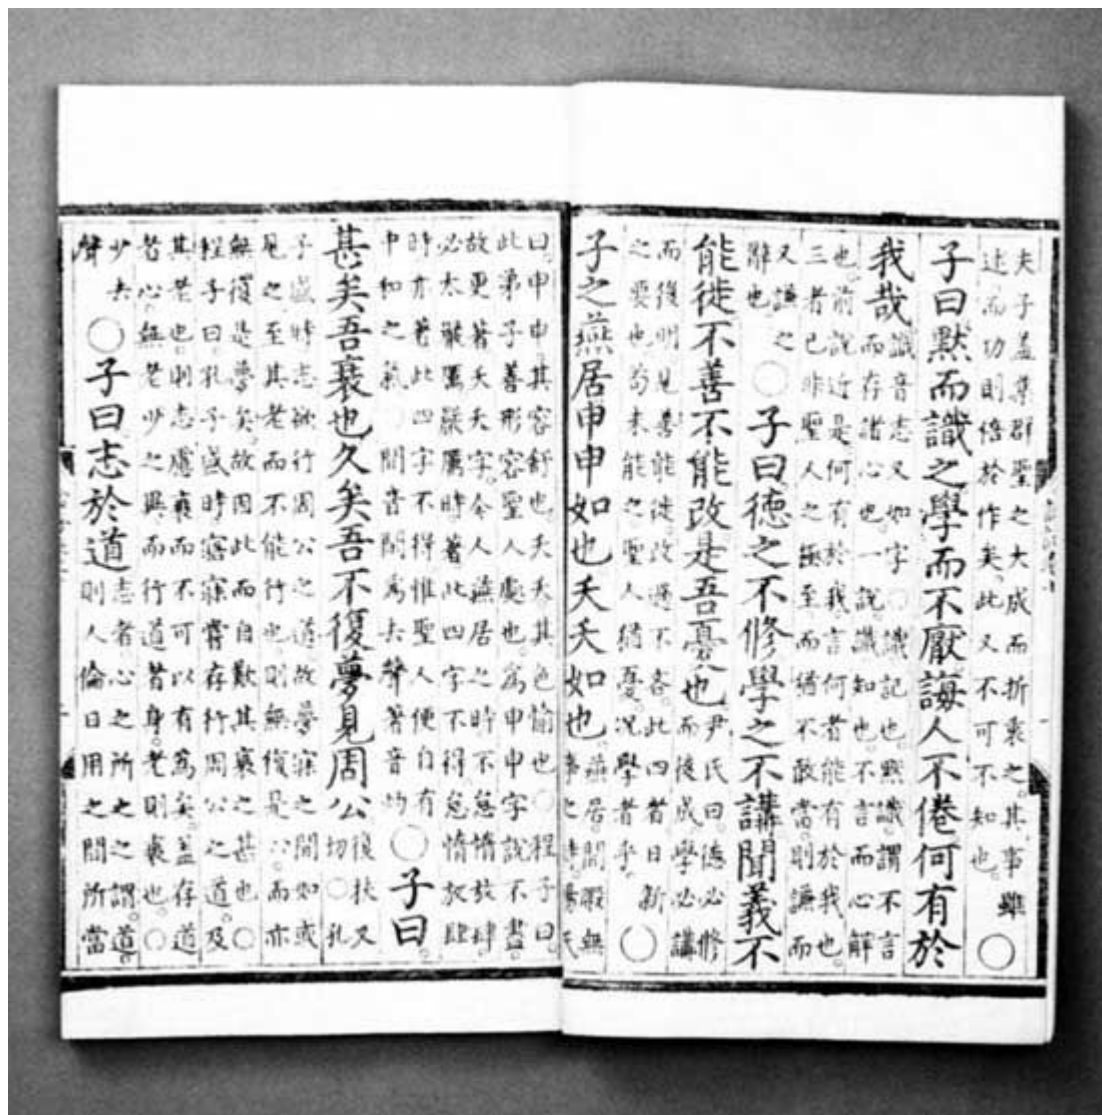 夫子盖集群聖之大成而折衷之。其事雖
述而功則倍於作矣。此又不可不知也。○
子曰默而識之學而不厭誨人不倦何有於
我哉
識音志又如字○識記也。默識。謂不言
而存諸心也。一說。識知也。不言而心解
也。前說近是。何有於我。言何者能有於我也。
三者已非聖人之極至而猶不敢當。則謙而
又謙之
辭也
○子曰德之不修學之不講聞義不
能徙不善不能改是吾憂也
尹氏曰。德必修
而後成。學必講
而後明。見善能徙。改過不吝。此四者日新
之要也。苟未能之。聖人猶憂。况學者乎。○
子之燕居申申如也夭夭如也
燕居。間暇無
事之時。楊氏
曰。申申其容舒也。夭夭其色愉也○程子曰。
此弟子善形容聖人處也。為申申字說不盡。
故更著夭夭字。今人燕居之時。不怠惰放肆。
必太嚴厲。嚴厲時。著此四字不得。怠惰放肆
時。亦著此四字不得。惟聖人便自有
中和之氣○間音閑為去聲著音灼
○子曰
甚矣吾衰也久矣吾不復夢見周公
復扶又
切○孔
子盛時。志欲行周公之道。故夢寐之間如或
見之。至其老而不能行也。則無復是心。而亦
無復是夢矣。故因此而自歎其衰之甚也○
程子曰。孔子盛時。寤寐嘗存行周公之道。及
其老也。則志慮衰而不可以有為矣。盖存道
者心。無老少之異。而行道者身。老則衰也。○
少去
聲
○子曰志於道
志者心之所之之謂。道
則人倫日用之間所當